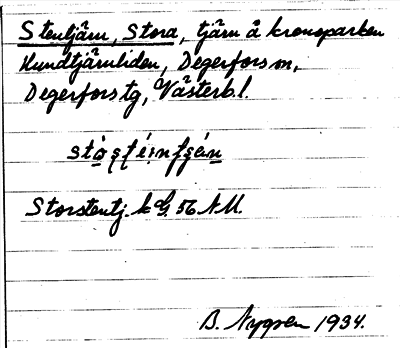 Stentjärn, Stora, tjärn å kronoparken
Hundtjärnliden, Degerfors sn,
Degerfors tg, Västerb. l.
Storstentj. k G. 56 NU.
B. Nygren 1934.